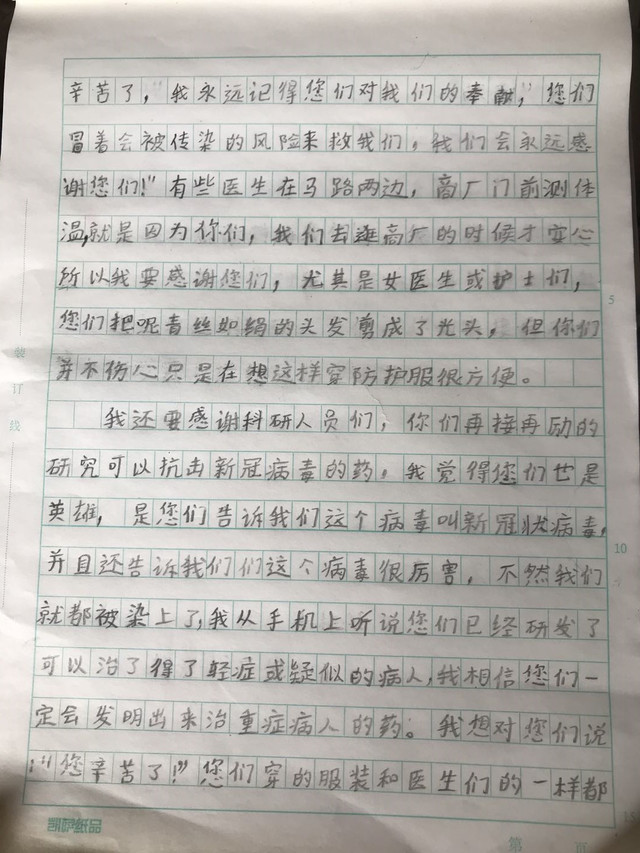 辛苦了，“我永远记得您们对我们的奉献，”您们
冒着会被传染的风险来救我们，我们会永远感
谢您们！”有些医生在马路两边，商厂门前测体
温，就是因为你们，我们去逛商厂的时候才安心
所以我要感谢您们，尤其是女医生或护士们，
您们把呢青丝如绢的头发剪成了光头，但你们
并不伤心只是在想这样穿防护服很方便。
我还要感谢科研人员们，你们再接再励的
研究可以抗击新冠病毒的药，我觉得您们也是
英雄，是您们告诉我们这个病毒叫新冠状病毒，
并且还告诉我们们这个病毒很厉害，不然我们
就都被染上了，我从手机上听说您们已经研发了
可以治了得了轻症或疑似的病人，我相信您们一
定会发明出来治重症病人的药。我想对您们说
：“您辛苦了！”您们穿的服装和医生们的一样都
凯萨纸品
第 页
装订线
5
10
15